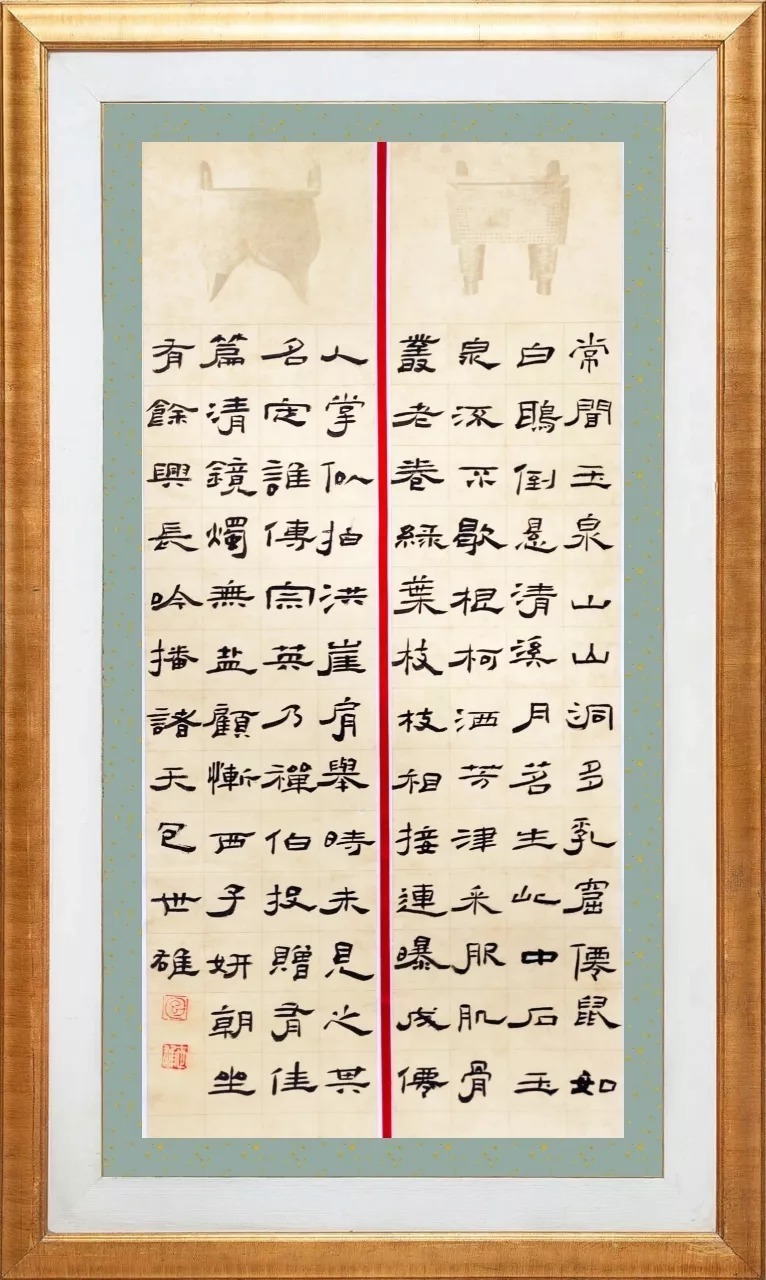 常聞玉泉山山洞多乳窟僊鼠如
白鵶倒悬清溪月茗生此中石玉
泉流不歇根柯洒芳津采服肌骨
叢老卷綠葉枝枝相接連曝成僊
人掌似拍洪崖肩舉時未見之其
名定誰傳宗英乃禪伯投贈有佳
篇清鏡燭無盐顧慚西子妍朝坐
有餘興長吟播諸天包世雄